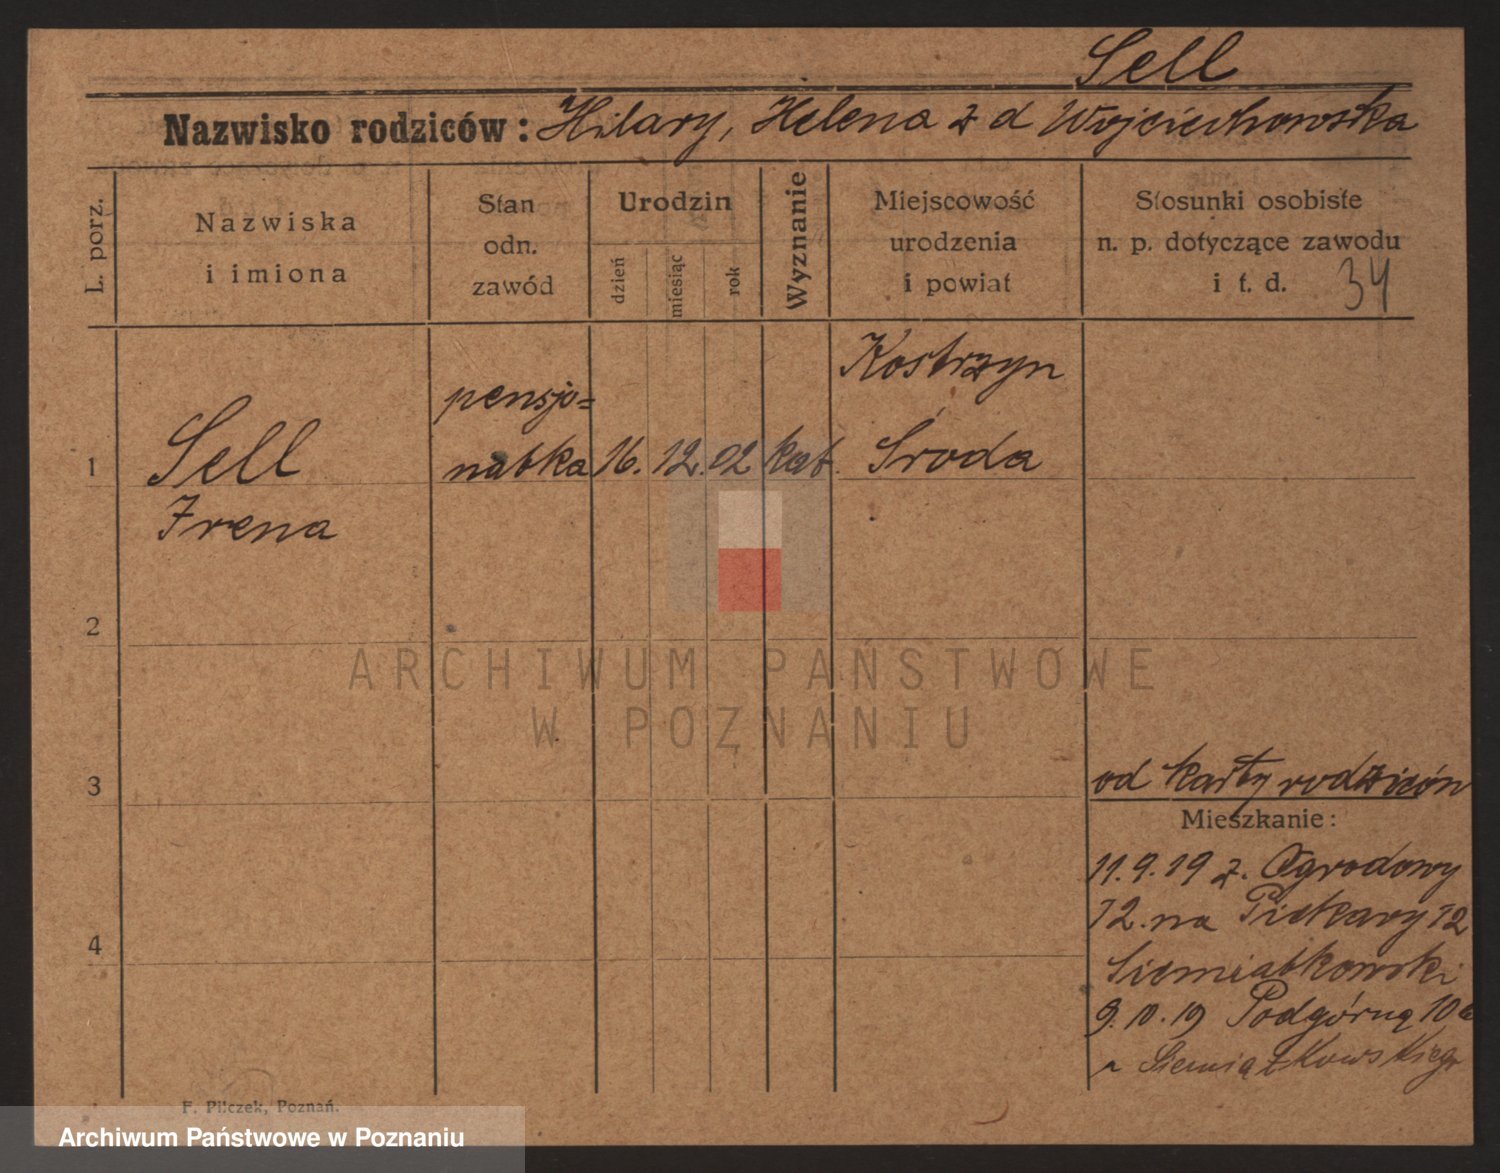 Sell
Nazwisko rodziców: Hilary, Helena z d Wojciechowska
L. porz.
Nazwiska
i imiona
Stan
odn.
zawód
Urodzin
dzień
miesiąc
rok
Wyznanie
Miejscowość
urodzenia
i powiat
Stosunki osobiste
n. p. dotyczące zawodu
i t. d.
34
1
Sell
Irena
pensjo=
natka
16. 12. 02
kat.
Kostrzyn
Środa
2
3
4
od karty rodziców
Mieszkanie:
11.9.19 z. Ogrodowy
12. na Piekary 12
Siemiatkowski
9.10.19 Podgórną 10a
Siemiątkowskiego
F. Pilczek, Poznań.
ARCHIWUM PAŃSTWOWE
W POZNANIU
Archiwum Państwowe w Poznaniu